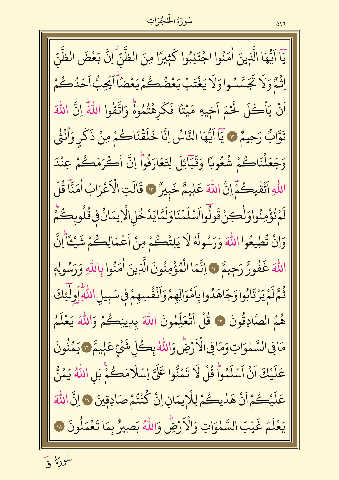 سُورَةُ الْحُجُرَاتِ
٥١٦
يَٓا اَيُّهَا الَّذ۪ينَ اٰمَنُوا اجْتَنِبُوا كَث۪يرًا مِنَ الظَّنِّۘ اِنَّ بَعْضَ الظَّنِّ
اِثْمٌ وَلَا تَجَسَّسُوا وَلَا يَغْتَبْ بَعْضُكُمْ بَعْضًاۜ اَيُحِبُّ اَحَدُكُمْ
اَنْ يَأْكُلَ لَحْمَ اَخ۪يهِ مَيْتًا فَكَرِهْتُمُوهُۜ وَاتَّقُوا اللّٰهَۜ اِنَّ اللّٰهَ
تَوَّابٌ رَح۪يمٌ ١٢ يَٓا اَيُّهَا النَّاسُ اِنَّا خَلَقْنَاكُمْ مِنْ ذَكَرٍ وَاُنْثٰى
وَجَعَلْنَاكُمْ شُعُوبًا وَقَبَٓائِلَ لِتَعَارَفُواۜ اِنَّ اَكْرَمَكُمْ عِنْدَ
اللّٰهِ اَتْقٰيكُمْۜ اِنَّ اللّٰهَ عَل۪يمٌ خَب۪يرٌ ١٣ قَالَتِ الْاَعْرَابُ اٰمَنَّاۜ قُلْ
لَمْ تُؤْمِنُوا وَلٰكِنْ قُولُٓوا اَسْلَمْنَا وَلَمَّا يَدْخُلِ الْا۪يمَانُ ف۪ي قُلُوبِكُمْۜ
وَاِنْ تُط۪يعُوا اللّٰهَ وَرَسُولَهُ لَا يَلِتْكُمْ مِنْ اَعْمَالِكُمْ شَيْـًٔاۜ اِنَّ
اللّٰهَ غَفُورٌ رَح۪يمٌ ١٤ اِنَّمَا الْمُؤْمِنُونَ الَّذ۪ينَ اٰمَنُوا بِاللّٰهِ وَرَسُولِه۪
ثُمَّ لَمْ يَرْتَابُوا وَجَاهَدُوا بِاَمْوَالِهِمْ وَاَنْفُسِهِمْ ف۪ي سَب۪يلِ اللّٰهِۜ اُو۬لٰٓئِكَ
هُمُ الصَّادِقُونَ ١٥ قُلْ اَتُعَلِّمُونَ اللّٰهَ بِد۪ينِكُمْ وَاللّٰهُ يَعْلَمُ
مَا فِي السَّمٰوَاتِ وَمَا فِي الْاَرْضِۜ وَاللّٰهُ بِكُلِّ شَيْءٍ عَل۪يمٌ ١٦ يَمُنُّونَ
عَلَيْكَ اَنْ اَسْلَمُواۜ قُلْ لَا تَمُنُّوا عَلَيَّ اِسْلَامَكُمْۚ بَلِ اللّٰهُ يَمُنُّ
عَلَيْكُمْ اَنْ هَدٰيكُمْ لِلْا۪يمَانِ اِنْ كُنْتُمْ صَادِق۪ينَ ١٧ اِنَّ اللّٰهَ
يَعْلَمُ غَيْبَ السَّمٰوَاتِ وَالْاَرْضِۜ وَاللّٰهُ بَص۪يرٌ بِمَا تَعْمَلُونَ ١٨
سُورَةُ قٓ